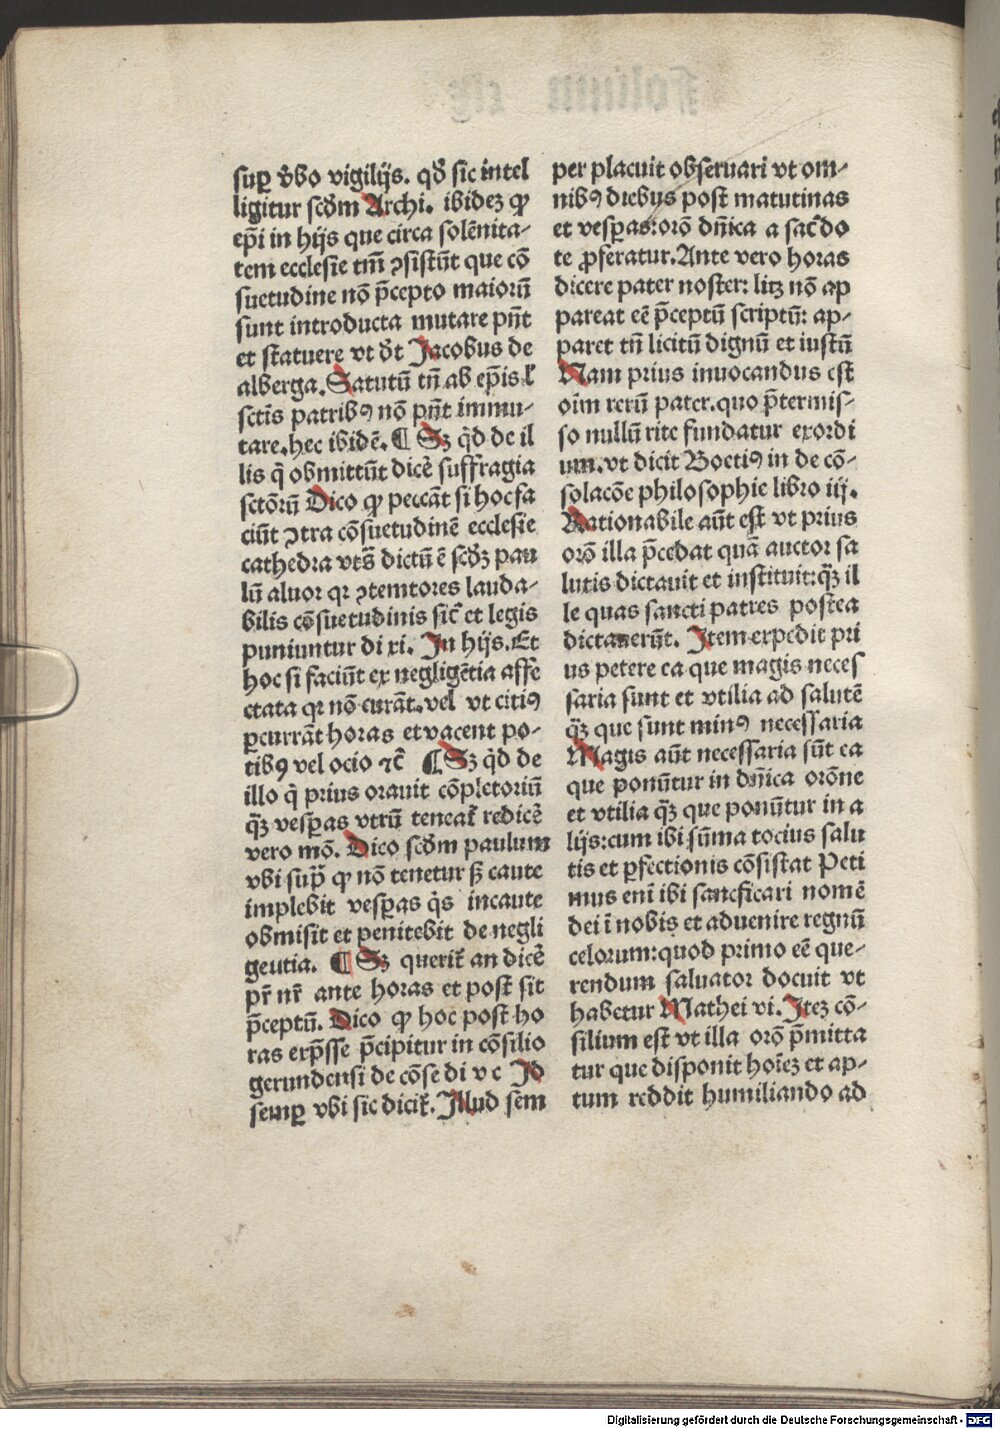 suꝑ v̓bo vigilijs. qđ sic intel
ligitur scđm Archi. ibidez ꝙ
ep̄i in hijs que circa solēnita-
tem ecclesie tm̄ ꝯsistūt que cō
suetudine nō p̄cepto maiorū
sunt introducta mutare pn̄t
et statuere vt d̄t Jacobus de
alberga. Satutū tn̄ ab ep̄is ł
sctīs patribꝰ nō pn̄t immu-
tare. hec ibidē. ¶ Sz qͥd de il
lis qͥ obmittūt dicē suffragia
sctōrū Dico ꝙ peccāt si hoc fa
ciūt ꝯtra cōsuetudinē ecclesie
cathedra vts̄ dictū ē scđz pau
lū aluor qr ꝯtemtores lauda-
bilis cōsuetudinis sic̄ et legis
puniuntur di xi. In hijs. Et
hoc si faciūt ex negligētia affe
ctata qr nō curāt. vel vt citiꝰ
ꝑcurrāt horas et vacent po-
tibꝰ vel ocio ⁊c̄ ¶ Sz qͥd de
illo qͥ prius orauit cōpletoriū
qꝫ̄ vesꝑas vtrū teneat᷑ redicē
vero mō. Dico scđm paulum
vbi sup̄ ꝙ nō tenetur sꝫ caute
implebit vesꝑas qͥs incaute
obmisit et penitebit de negli
geutia. ¶ Sz querit᷑ an dicē
pr̄ nr̄ ante horas et post sit
p̄ceptū. Dico ꝙ hoc post ho
ras exp̄sse p̄cipitur in cōsilio
gerundensi de cōse di v c Id
semꝑ vbi sic dicit᷑. Illud sem
per placuit obseruari vt om-
nibꝰ diebus post matutinas
et vesꝑas: orō dn̄ica a sac̄do
te ꝓferatur. Ante vero horas
dicere pater noster: litz nō ap
pareat eē p̄ceptū scriptū: ap-
paret tn̄ licitū dignū et iustū
Nam prius inuocandus est
oīm rerū pater. quo p̄termis-
so nullū rite fundatur exordi
um. vt dicit Boctiꝰ in de cō-
solacōe philosophie libro iij.
Rationabile aūt est vt prius
orō illa p̄cedat quā auctor sa
lutis dictauit et instituit: qꝫ̄ il
le quas sancti patres postea
dictauerūt. Item expedit pri
us petere ea que magis neces
saria sunt et vtilia ad salutē
qꝫ̄ que sunt minꝰ necessaria
Magis aūt necessaria sūt ea
que ponūtur in dn̄ica orōne
et vtilia qꝫ̄ que ponūtur in a
lijs: cum ibi sūma tocius salu
tis et ꝑfectionis cōsistat Peti
mus eni ibi sancficari nomē
dei ī nobis et aduenire regnū
celorum: quod primo eē que-
rendum saluator docuit vt
habetur Mathei vi. Itez cō-
silium est vt illa orō p̄mitta
tur que disponit hoīez et ap-
tum reddit humiliando ad
Digitalisierung gefördert durch die Deutsche Forschungsgemeinschaft - DFG